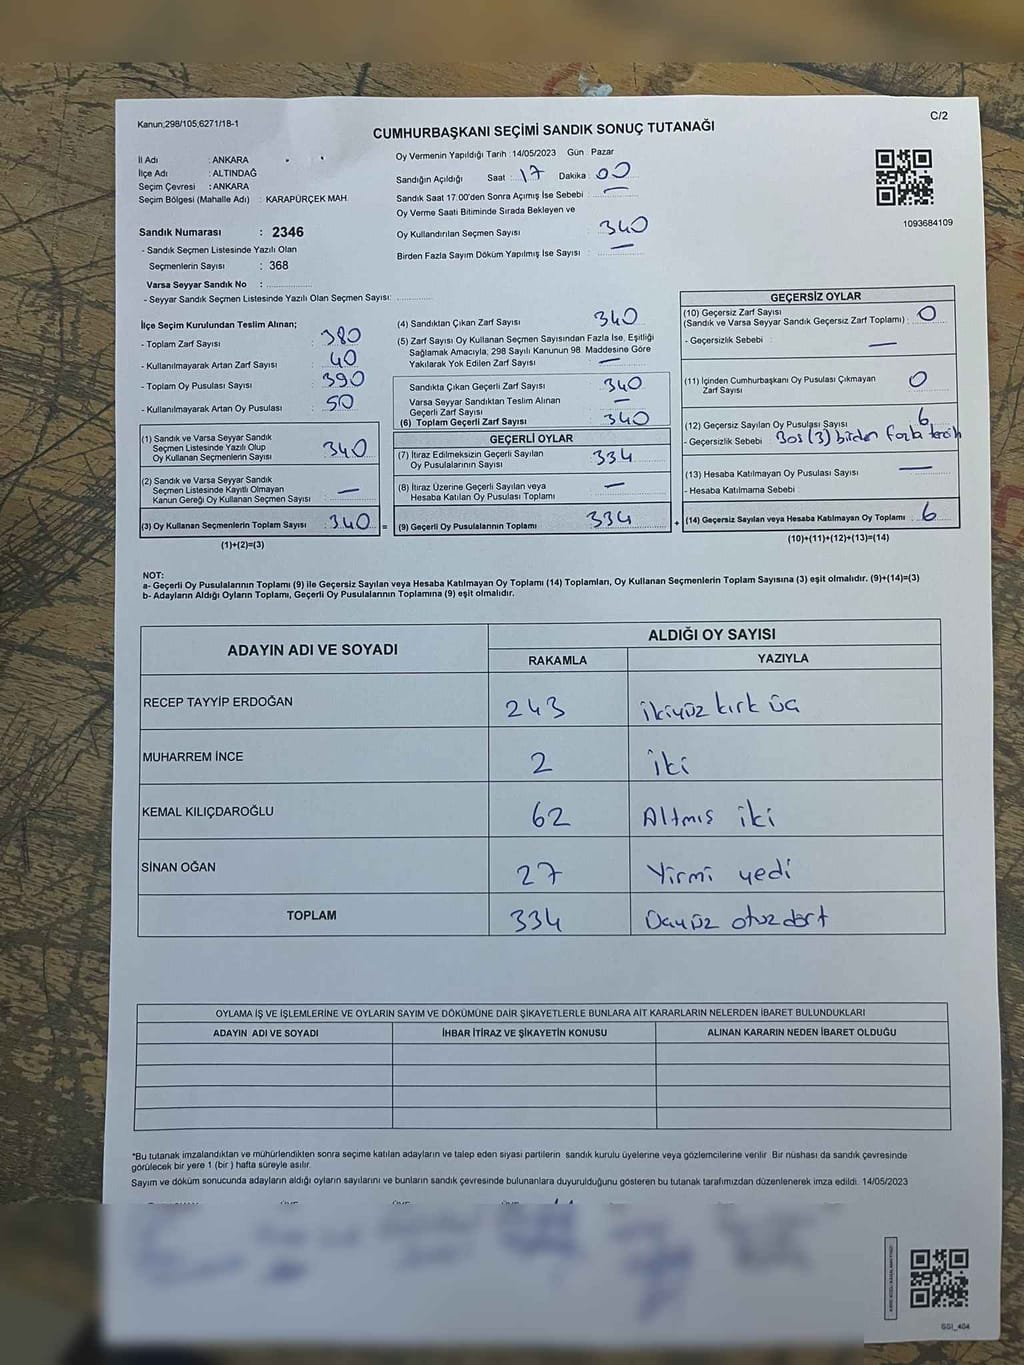 Kanun,298/105,6271/18-1
C/2
CUMHURBAŞKANI SEÇİMİ SANDIK SONUÇ TUTANAĞI
İl Adı : ANKARA
İlçe Adı : ALTINDAĞ
Seçim Çevresi : ANKARA
Seçim Bölgesi (Mahalle Adı) : KARAPÜRÇEK MAH.
Sandık Numarası : 2346
- Sandık Seçmen Listesinde Yazılı Olan
Seçmenlerin Sayısı : 368
Varsa Seyyar Sandık No :
- Seyyar Sandık Seçmen Listesinde Yazılı Olan Seçmen Sayısı:
Oy Vermenin Yapıldığı Tarih :14/05/2023 Gün : Pazar
Sandığın Açıldığı Saat : 17 Dakika : 00
Sandık Saat 17:00'den Sonra Açımış İse Sebebi : —
Oy Verme Saati Bitiminde Sırada Bekleyen ve
Oy Kullandırılan Seçmen Sayısı : 340
Birden Fazla Sayım Döküm Yapılmış İse Sayısı : —
1093684109
İlçe Seçim Kurulundan Teslim Alınan;
- Toplam Zarf Sayısı : 380
- Kullanılmayarak Artan Zarf Sayısı : 40
- Toplam Oy Pusulası Sayısı : 390
- Kullanılmayarak Artan Oy Pusulası : 50
(1) Sandık ve Varsa Seyyar Sandık
Seçmen Listesinde Yazılı Olup
Oy Kullanan Seçmenlerin Sayısı : 340
(2) Sandık ve Varsa Seyyar Sandık
Seçmen Listesinde Kayıtlı Olmayan
Kanun Gereği Oy Kullanan Seçmen Sayısı : —
(3) Oy Kullanan Seçmenlerin Toplam Sayısı : 340 =
(1)+(2)=(3)
(4) Sandıktan Çıkan Zarf Sayısı : 340
(5) Zarf Sayısı Oy Kullanan Seçmen Sayısından Fazla İse, Eşitliği
Sağlamak Amacıyla, 298 Sayılı Kanunun 98. Maddesine Göre
Yakılarak Yok Edilen Zarf Sayısı : —
Sandıkta Çıkan Geçerli Zarf Sayısı : 340
Varsa Seyyar Sandıktan Teslim Alınan
Geçerli Zarf Sayısı : —
(6) Toplam Geçerli Zarf Sayısı : 340
GEÇERLİ OYLAR
(7) İtiraz Edilmeksizin Geçerli Sayılan
Oy Pusulalarının Sayısı : 334
(8) İtiraz Üzerine Geçerli Sayılan veya
Hesaba Katılan Oy Pusulası Toplamı : —
(9) Geçerli Oy Pusulalarının Toplamı : 334 +
GEÇERSİZ OYLAR
(10) Geçersiz Zarf Sayısı
(Sandık ve Varsa Seyyar Sandık Geçersiz Zarf Toplamı) : 0
- Geçersizlik Sebebi : —
(11) İçinden Cumhurbaşkanı Oy Pusulası Çıkmayan
Zarf Sayısı : 0
(12) Geçersiz Sayılan Oy Pusulası Sayısı : 6
- Geçersizlik Sebebi : Bos (3) birden fazla tercih
(13) Hesaba Katılmayan Oy Pusulası Sayısı : —
- Hesaba Katılmama Sebebi :
(14) Geçersiz Sayılan veya Hesaba Katılmayan Oy Toplamı : 6
(10)+(11)+(12)+(13)=(14)
NOT:
a- Geçerli Oy Pusulalarının Toplamı (9) ile Geçersiz Sayılan veya Hesaba Katılmayan Oy Toplamı (14) Toplamları, Oy Kullanan Seçmenlerin Toplam Sayısına (3) eşit olmalıdır. (9)+(14)=(3)
b- Adayların Aldığı Oyların Toplamı, Geçerli Oy Pusulalarının Toplamına (9) eşit olmalıdır.
ADAYIN ADI VE SOYADI
ALDIĞI OY SAYISI
RAKAMLA YAZIYLA
RECEP TAYYİP ERDOĞAN 243 ikiyüz kırk üç
MUHARREM İNCE 2 iki
KEMAL KILIÇDAROĞLU 62 Altmıs iki
SİNAN OĞAN 27 Yirmi yedi
TOPLAM 334 Üçyüz otuz dört
OYLAMA İŞ VE İŞLEMLERİNE VE OYLARIN SAYIM VE DÖKÜMÜNE DAİR ŞİKAYETLERLE BUNLARA AİT KARARLARIN NELERDEN İBARET BULUNDUKLARI
ADAYIN ADI VE SOYADI İHBAR İTİRAZ VE ŞİKAYETİN KONUSU ALINAN KARARIN NEDEN İBARET OLDUĞU
*Bu tutanak imzalandıktan ve mühürlendikten sonra seçime katılan adayların ve talep eden siyasi partilerin sandık kurulu üyelerine veya gözlemcilerine verilir. Bir nüshası da sandık çevresinde
görülecek bir yere 1 (bir) hafta süreyle asılır.
Sayım ve döküm sonucunda adayların aldığı oyların sayılarını ve bunların sandık çevresinde bulunanlara duyurulduğunu gösteren bu tutanak tarafımızdan düzenlenerek imza edildi. 14/05/2023
SSI_404